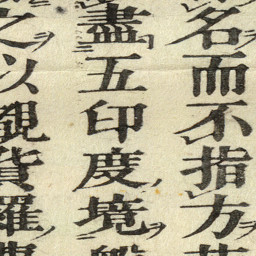 名而不指方
盡五印度境
之以覩貨羅